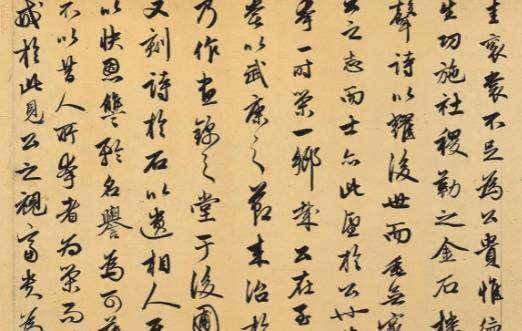 圭袞裳不足為公貴惟德
生功施社稷勒之金石播
聲詩以耀後世而垂無窮
公之志而士亦此望於公
夸一时榮一鄉哉公在至
嘗以武康之節来治於
乃作晝錦之堂于後圃
又刻詩於石以遺相人其
以快恩讎矜名譽為可薄
不以昔人所夸者為榮而
戒於此見公之視富貴為